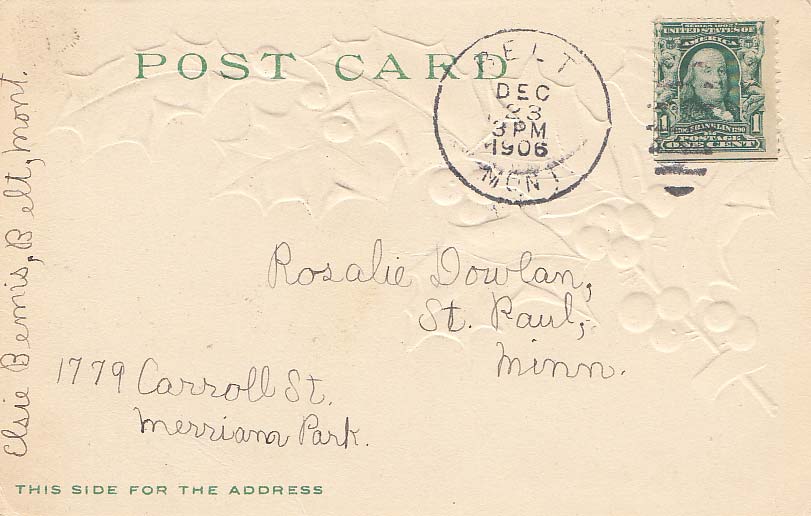 POST CARD
BELT
DEC
23
3 PM
1906
MONT
SERIES 1902
UNITED STATES OF AMERICA
1 FRANKLIN 1
POSTAGE
ONE CENT
Elsie Bemis, Belt, Mont.
Rosalie Dowlan,
St. Paul,
Minn.
1779 Carroll St.
Merriam Park.
THIS SIDE FOR THE ADDRESS